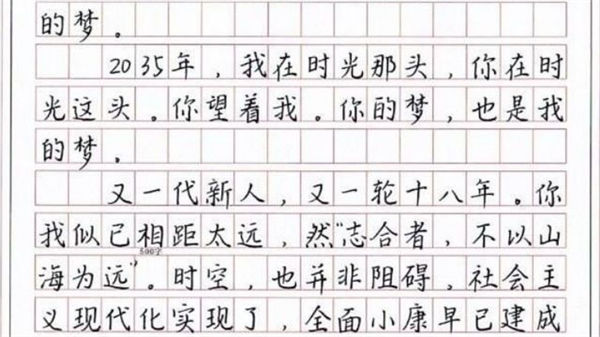 的梦。
2035年，我在时光那头，你在时
光这头。你望着我。你的梦，也是我
的梦。
又一代新人，又一轮十八年。你
我似已相距太远，然“志合者，不以山
500字
海为远”。时空，也并非阻碍，社会主
义现代化实现了，全面小康早已建成